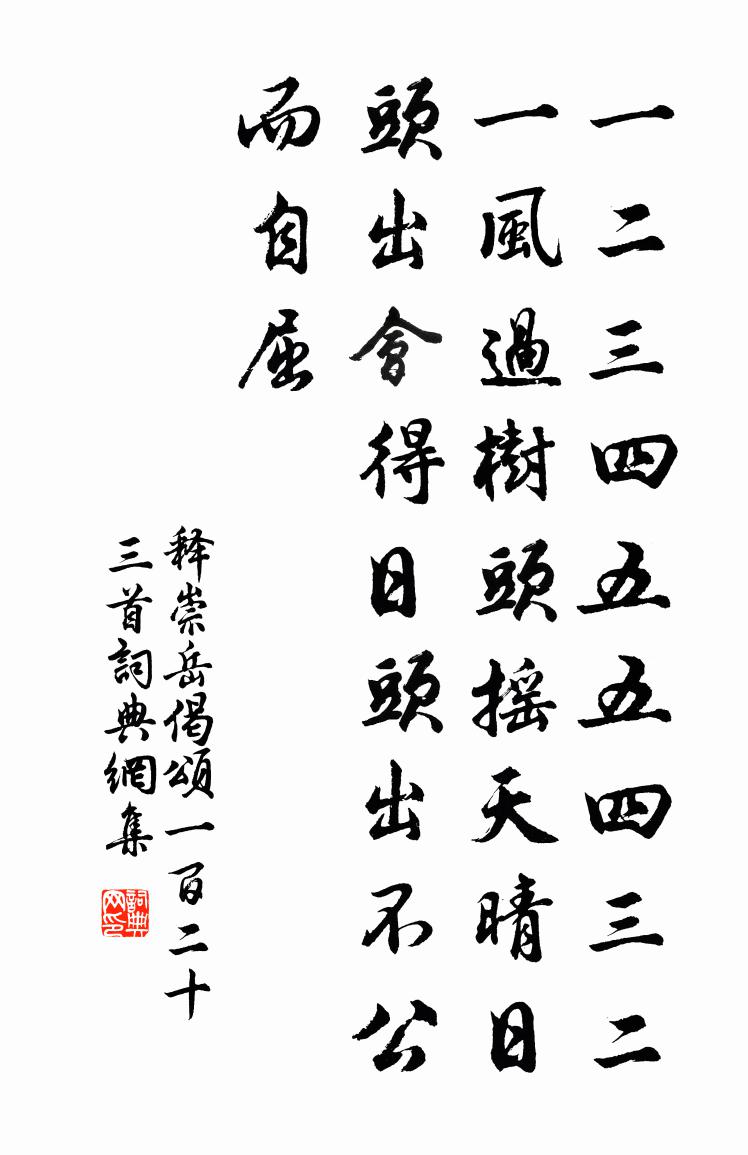 一二三四五五四三二
一風過樹頭摇天晴日
頭出會得日頭出不公
而自屈
释崇岳偈頌一百二十
三首詞典網集
詞典网印